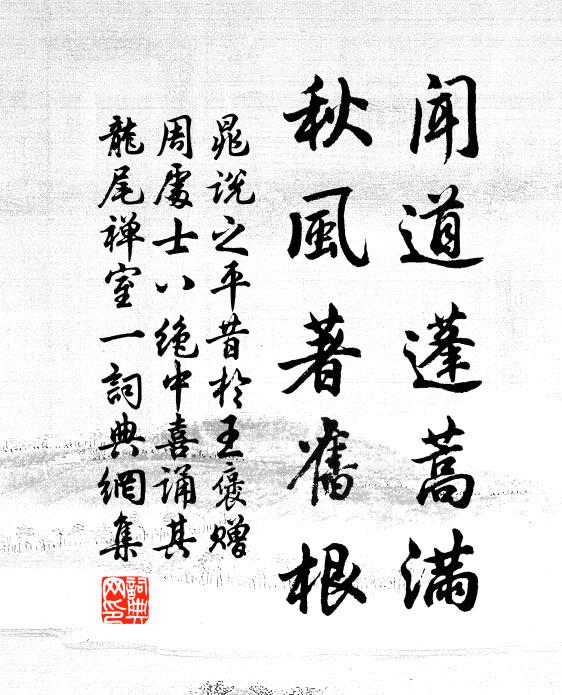 闻道蓬蒿满
秋風著舊根
晁说之平昔於王褒赠
周處士八绝中喜诵其
龍尾禅室一詞典網集
詞典网印